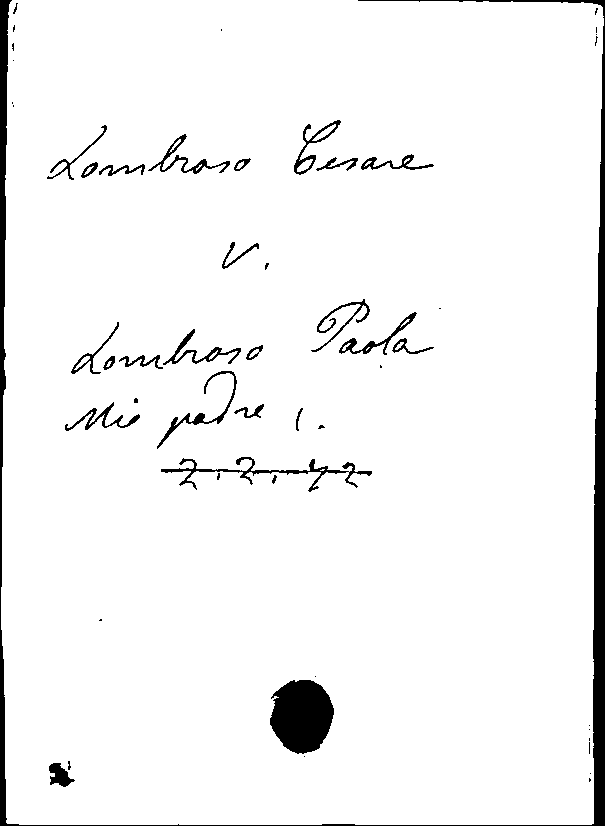 Lombroso Cesare
V.
Lombroso Paola
Mio padre (.
2.2.42